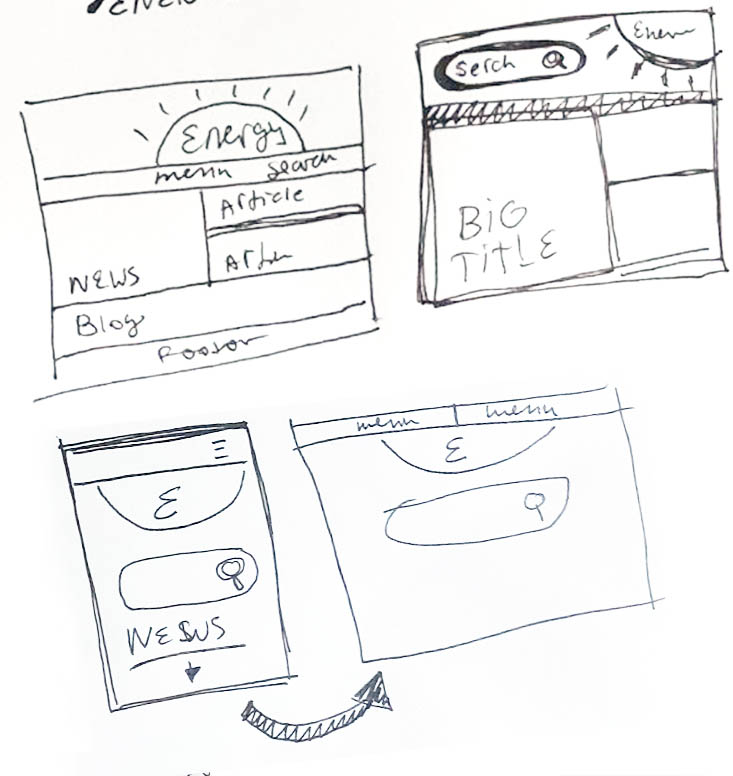 Energy
menu search
Article
NEWS
Blog
Foosor
Serch
BiG
TiTLE
E
NEWS
menu menu
E